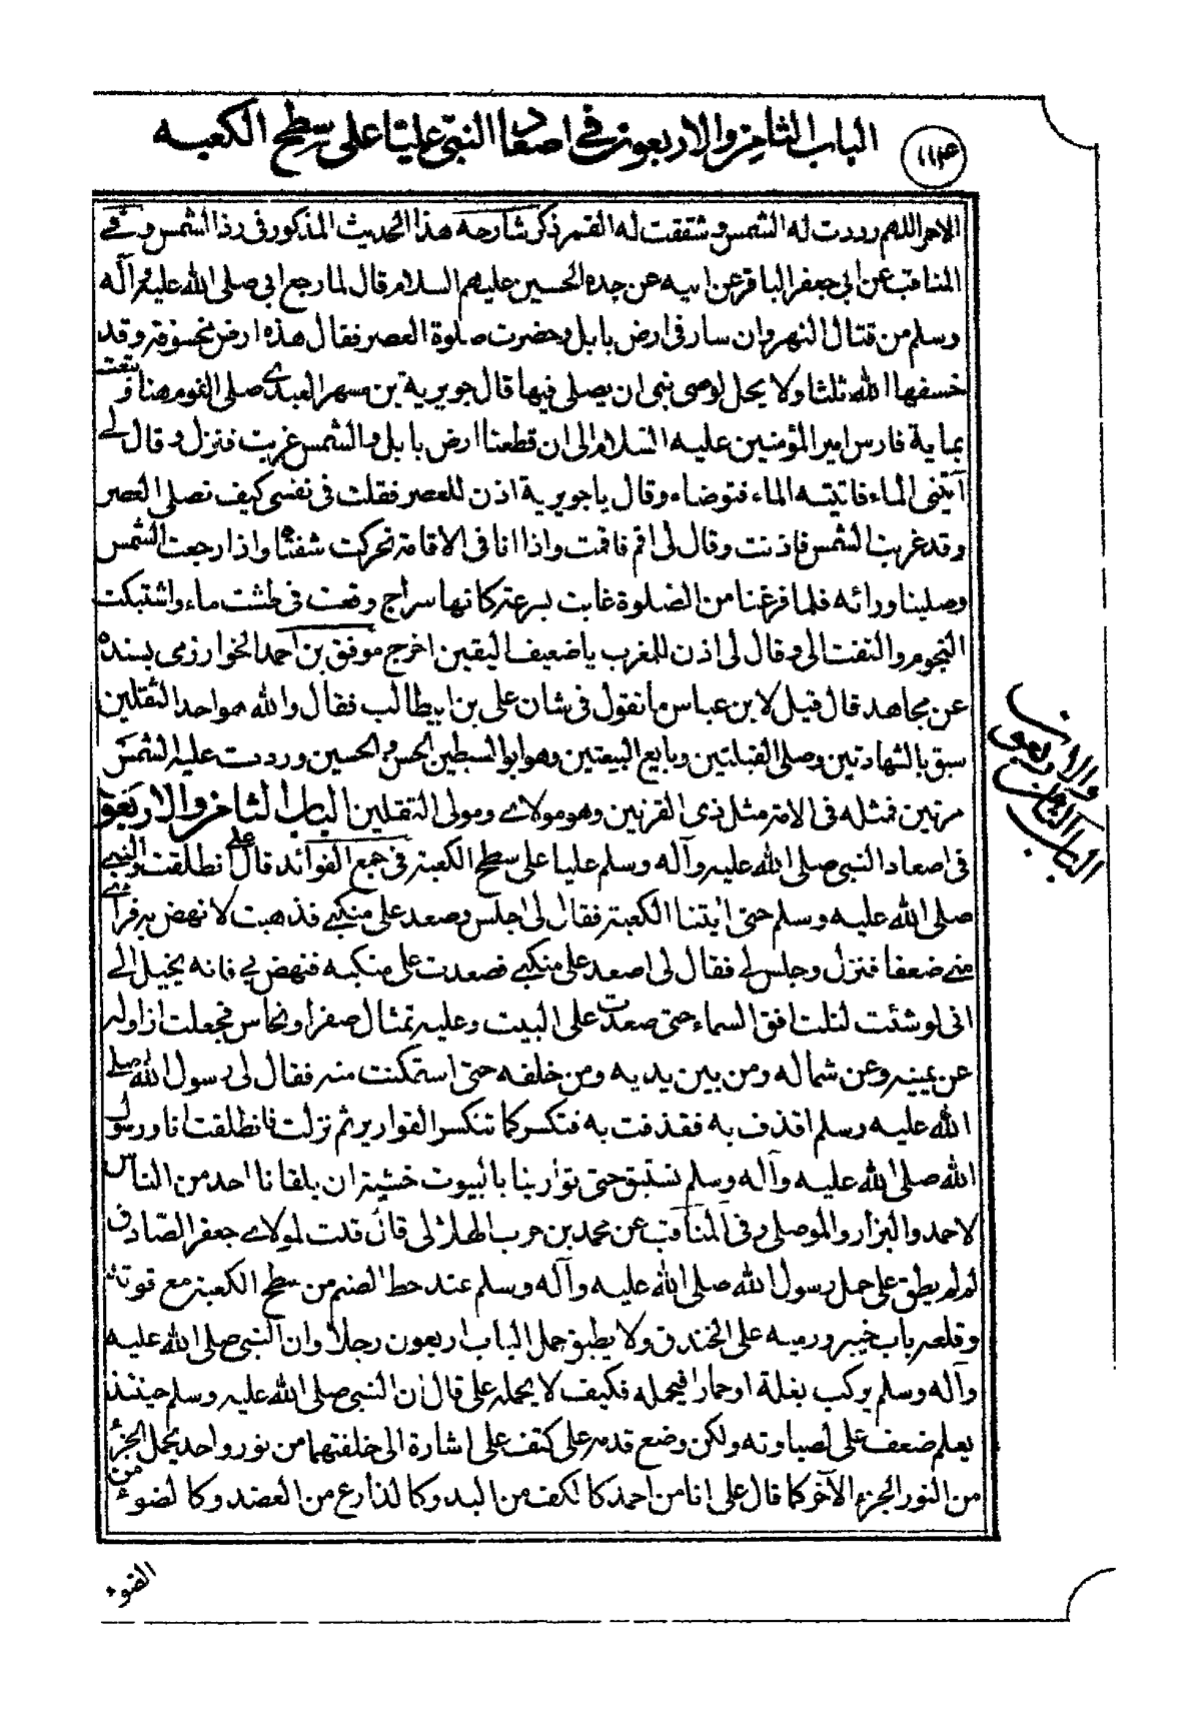 الباب الثامن والاربعون في اصعاد النبي عليا على سطح الكعبه
١١٤
الامر اللهم رددت له الشمس وشققت له القمر ذكر شارحه هذا الحديث المذكور فى رد الشمس وفي
المناقب عن ابى جعفر الباقر عن ابيه عن جده الحسين عليهم السلام قال لما رجع ابى صلى الله عليه وآله
وسلم من قتال النهروان سار فى ارض بابل وحضرت صلوة العصر فقال هذه ارض مخسوفة وقد
خسفها الله ثلثا ولا يحل لوصى نبى ان يصلى فيها قال جويرية بن مسهر العبدي صلى القوم هنا وتبعت
بماية فارس امير المؤمنين عليه السلام الى ان قطعنا ارض بابل والشمس غربت فنزل وقال لي
آتينى الماء فاتيته الماء فتوضاء وقال يا جويرية اذن للعصر فقلت فى نفسى كيف نصلى العصر
وقد غربت الشمس فاذنت وقال لى اقم فاقمت واذا انا فى الاقامة تحركت شفتاه واذا رجعت الشمس
وصلينا ورائه فلما فرغنا من الصلوة غابت بسرعة كانها سراج وقعت فى طشت ماء واشتبكت
النجوم والتفت الى وقال لى اذن للمغرب يا ضعيف اليقين اخرج موفق بن احمد الخوارزمى بسنده
عن مجاهد قال قيل لابن عباس ما تقول فى شان على بن ابيطالب فقال والله هو احد الثقلين
سبق بالشهادتين وصلى القبلتين وبايع البيعتين وهو ابو السبطين الحسن والحسين وردت عليه الشمس
مرتين فمثله فى الامة مثل ذى القرنين وهو مولاي ومولى الثقلين الباب الثامن والاربعون
فى اصعاد النبى صلى الله عليه وآله وسلم عليا على سطح الكعبة فى جمع الفوائد قال علي انطلقت والنبي
صلى الله عليه وسلم حتى اتيتنا الكعبة فقال لى اجلس وصعد على منكبي فذهبت لانهض به فرأى
مني ضعفا فنزل وجلس لي فقال لى اصعد على منكبي فصعدت على منكبه فنهض بي فانه يخيل الي
انى لو شئت لنلت افق السماء حتى صعدت على البيت وعليه تمثال صفر او نحاس فجعلت ازاوله
عن يمينه وعن شماله ومن بين يديه ومن خلفه حتى استمكنت منه فقال لى رسول الله صلى
الله عليه وسلم اقذف به فقذفت به فتكسر كما تنكسر القوارير ثم نزلت فانطلقت انا ورسول
الله صلى الله عليه وآله وسلم نستبق حتى توارينا بالبيوت خشية ان يلقانا احد من الناس
لاحمد والبزار والموصلى وفى المناقب عن محمد بن حرب الهلالى قال قلت لمولاي جعفر الصادق
لم لم يطق على حمل رسول الله صلى الله عليه وآله وسلم عند حط الصنم من سطح الكعبة مع قوته
وقلعه باب خيبر ورميه على الخندق ولا يطيق حمل الباب اربعون رجلا وان النبى صلى الله عليه
وآله وسلم يركب بغلة او حمارا فيحمله فكيف لا يحمله على قال ان النبى صلى الله عليه وسلم حينئذ
يعلم ضعف على لصباوته ولكن وضع قدمه على كتف على اشارة الى خلقتهما من نور واحد يحمل الجزء
من النور الجزء الآخر كما قال على انا من احمد كالكف من اليد وكالذارع من العضد وكالضوء من
الضوء
الباب الثامن
والاربعون